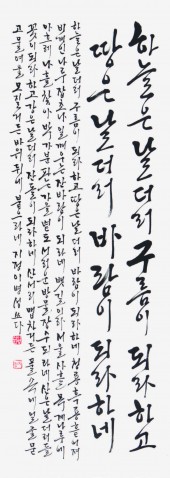 하늘은 날더러 구름이 되라 하고
땅은 날더러 바람이 되라하네
하늘은 날더러 구름이 되라하고 땅은 날더러 바람이 되라하네 청룡 흑룡 흩어져
비개인 나루 잡초나 일깨우는 잔바람이 되라네 뱃길이라 서울 사흘 목계 나루에
아흐레 나흘 찾아 박가분 파는 가을볕도 서러운 방물장수 되라네 산은 날더러 들
꽃이 되라하고 강은 날더러 잔돌이 되라하네 산서리 맵차거든 풀속에 얼굴 묻
고 물여울 모질거든 바위 뒤에 붙으라네 쓰다